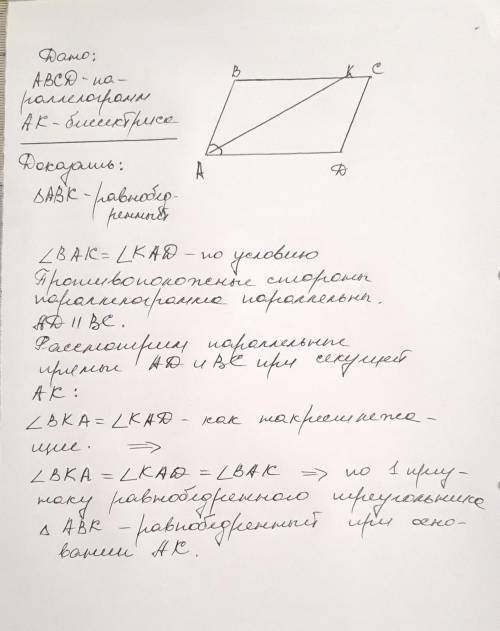 Дано:
ABCD - па-
раллелограмм
AK - биссектриса
Доказать:
△ABK - равнобед-
ренный
B K C
A D
∠BAK = ∠KAD - по условию
Противоположные стороны
параллелограмма параллельны.
AD || BC.
Рассмотрим параллельные
прямые AD и BC при секущей
AK:
∠BKA = ∠KAD - как накрестлежа-
щие. ⇒
∠BKA = ∠KAD = ∠BAK ⇒ по 1 приз-
наку равнобедренного треугольника
△ ABK - равнобедренный при осно-
вании AK.